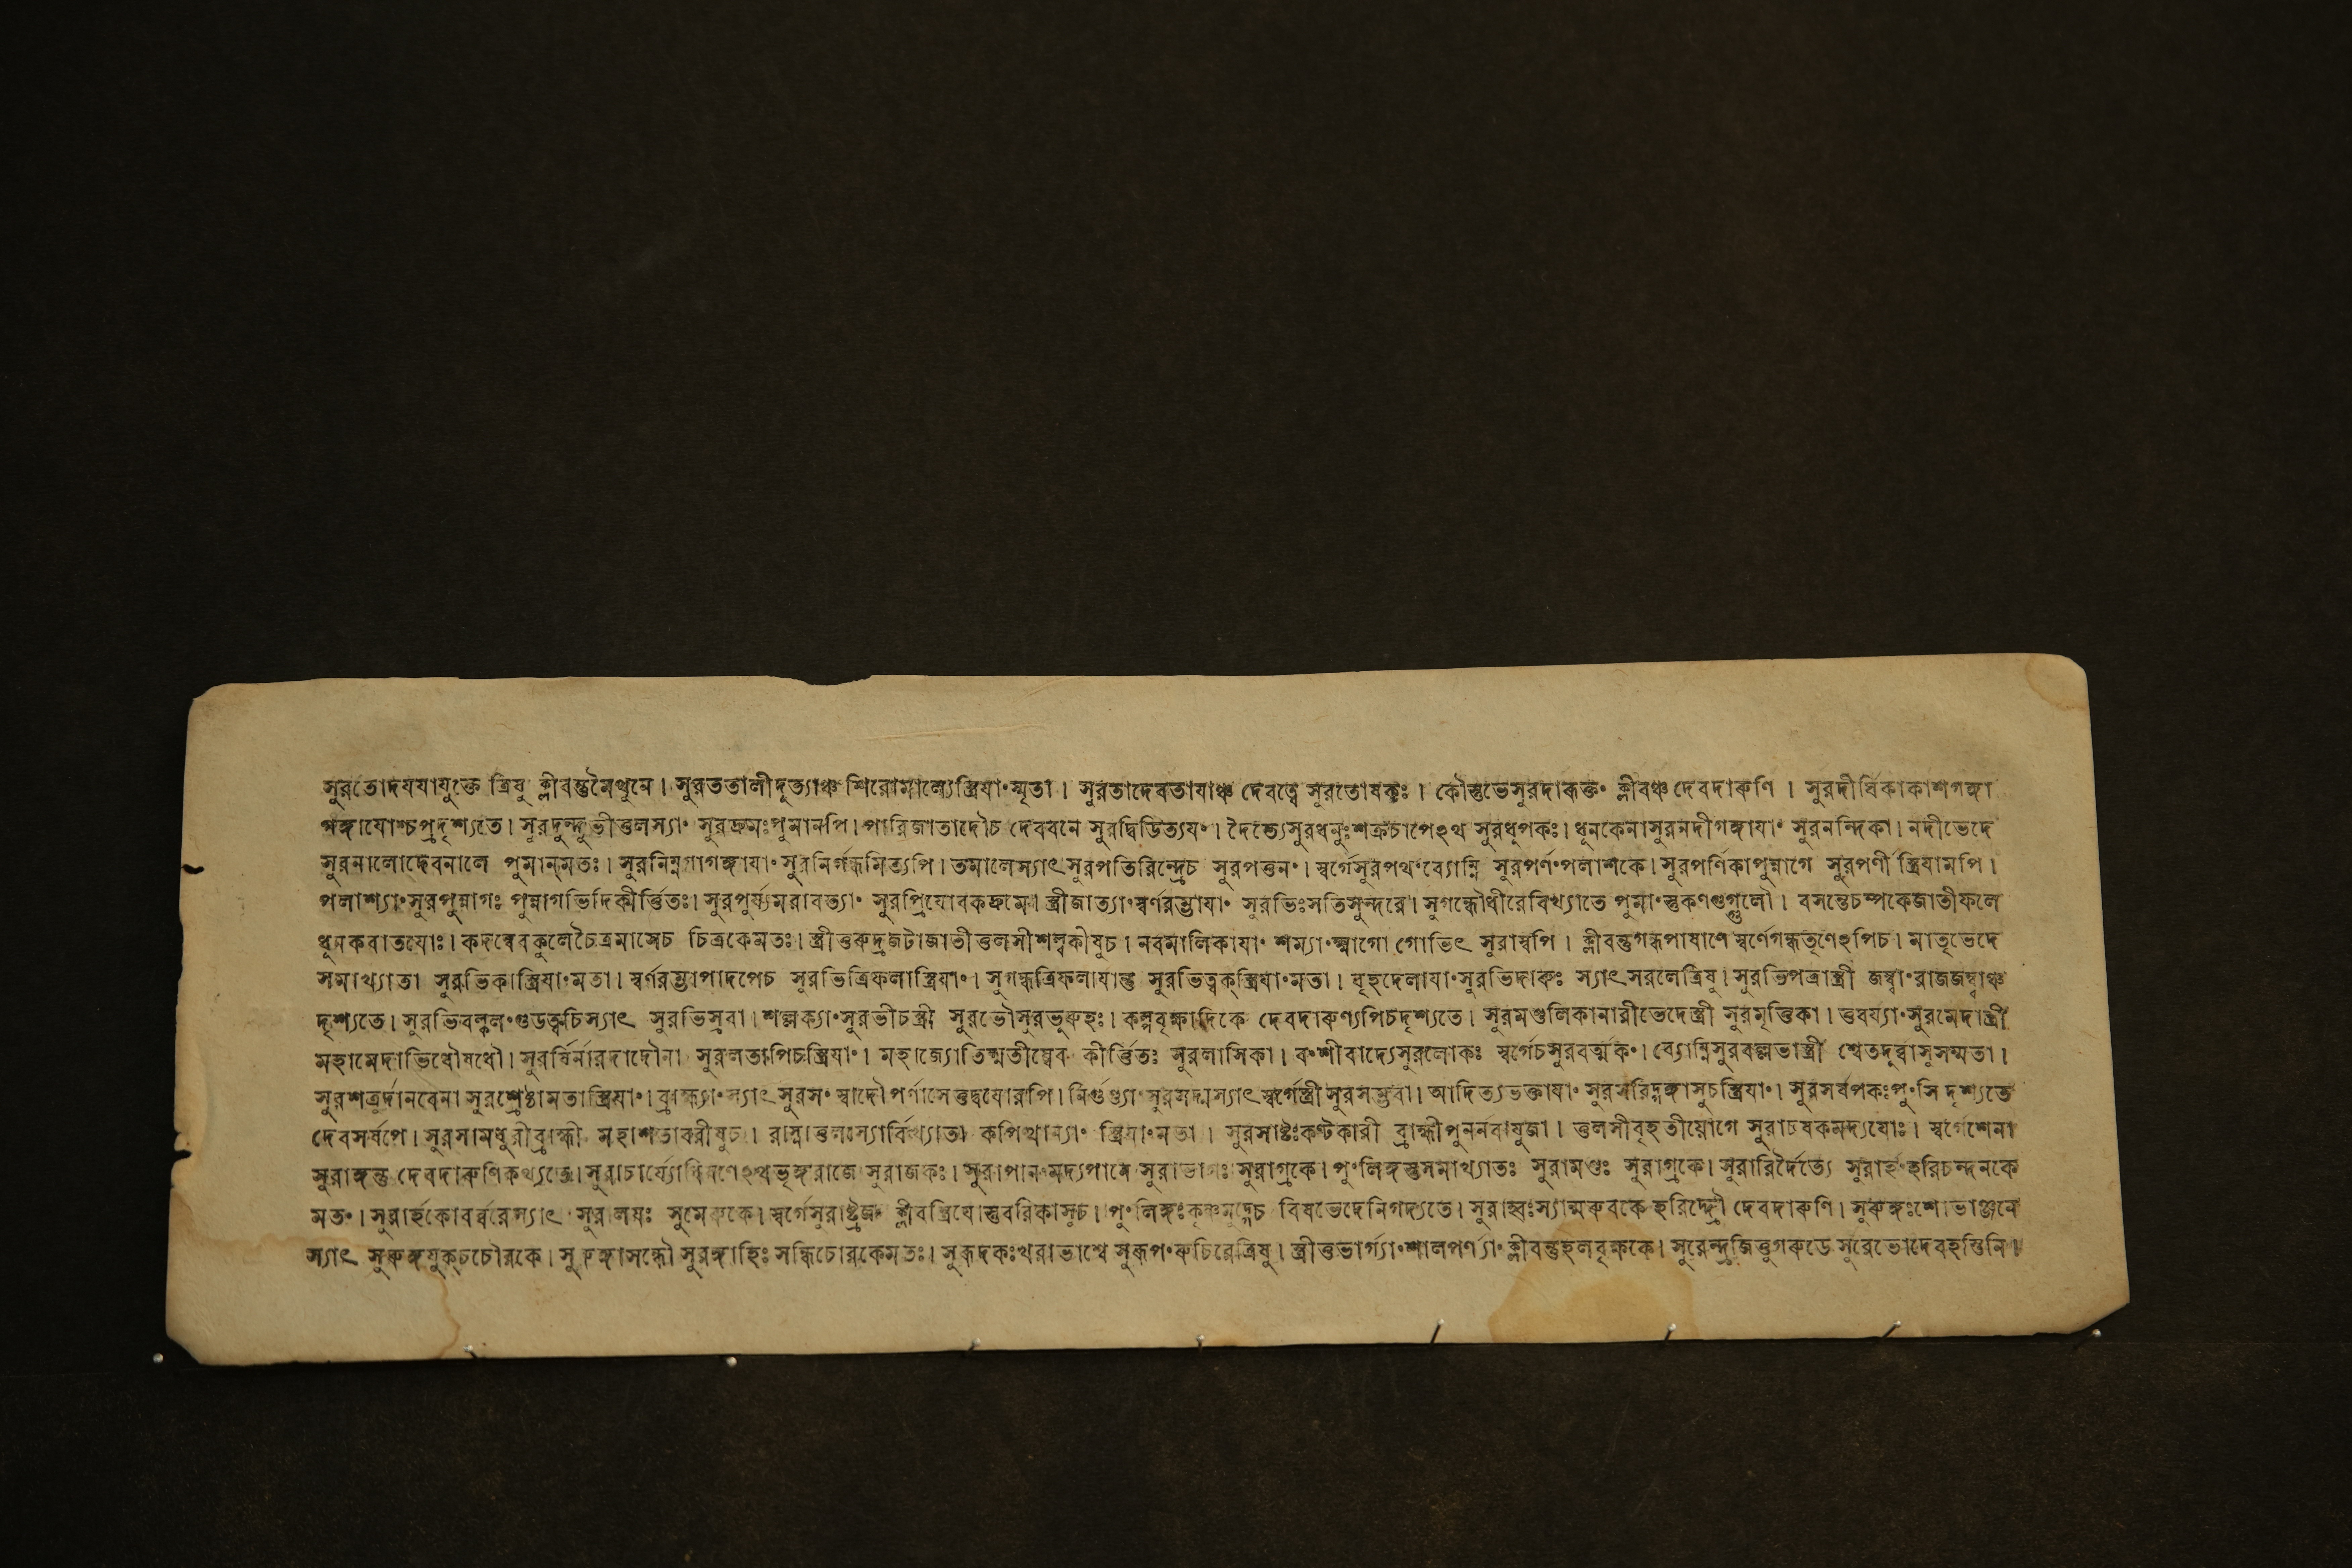 সুরতোদযযাযুক্তে ত্রিষু ক্লীবন্তুমৈথুনে। সুরততালীদুত্যাঞ্চ শিরোমাল্যেস্ত্রিযাং স্মৃতা। সুরতাদেবতাযাঞ্চ দেবত্বে সুরতোষকঃ। কৌস্তুভেসুরদারূক্তং ক্লীবঞ্চ দেবদারুণি । সুরদীর্ঘিকাকাশগঙ্গা
গঙ্গাযোশ্চপ্রদৃশ্যতে। সুরদুন্দুভীতুলস্যাং সুরদ্রুমঃপুমানপি। পারিজাতাদৌচ দেববনে সুরদ্বিডিত্যযং। দৈত্যেসুরধনুঃশক্রচাপেঽথ সুরধুপকঃ। ধুনকেনাসুরনদীগঙ্গাযাং সুরনন্দিকা। নদীভেদে
সুরনালোদেবনালে পুমান্মতঃ। সুরনিম্নগাগঙ্গাযাং সুরনির্গন্ধমিত্যপি। তমালেস্যাৎ সুরপতিরিন্দ্রেচ সুরপত্তনং। স্বর্গেসুরপথংব্যোম্নি সুরপর্ণংপলাশকে। সুরপর্ণিকাপুন্নাগে সুরপর্ণী স্ত্রিযামপি।
পলাশ্যাং সুরপুন্নাগঃ পুন্নাগভিদিকীর্ত্তিতঃ। সুরপুর্য্যমরাবত্যাং সুরপ্রিযোবকদ্রুমে। স্ত্রীজাত্যাং স্বর্ণরম্ভাযাং সুরভিঃসতিসুন্দরে। সুগন্ধৌধীরেবিখ্যাতে পুমাংস্তুকণগুগ্গুলৌ। বসন্তেচম্পকেজাতীফলে
ধুনকবাতযোঃ। কদম্বেবকুলেচৈত্রমাসেচ চিত্রকেমতঃ। স্ত্রীতুরুদ্রজটাজাতীতুলসীশল্লকীষুচ। নবমালিকাযাং শম্যাং গোভিৎ সুরাস্বপি। ক্লীবন্তুগন্ধপাষাণে স্বর্ণেগন্ধতৃণেঽপিচ। মাতৃভেদে
সমাখ্যাতা সুরভিকাস্ত্রিযাংমতা। স্বর্ণরম্ভাপাদপেচ সুরভিত্রিফলাস্ত্রিযাং। সুগন্ধত্রিফলাযান্তু সুরভিত্বক্স্ত্রিযাংমতা। বৃহদেলাযাং সুরভিদারুঃ স্যাৎ সরলেত্রিষু। সুরভিপত্রাস্ত্রী জম্ব্বাং রাজজম্ব্বাঞ্চ
দৃশ্যতে। সুরভিবল্কলংগুডত্বচিস্যাৎ সুরভিস্রবা। শল্লক্যাং সুরভীচস্ত্রী সুরভৌসুরভূরুহঃ। কল্পবৃক্ষাদিকে দেবদারুণ্যপিচদৃশ্যতে। সুরমণ্ডলিকানারীভেদেস্ত্রী সুরমৃত্তিকা। তুবর্য্যাং সুরমেদাস্ত্রী
মহামেদাভিধৌষধৌ। সুরর্ষির্নারদাদৌনা সুরলতাপিচস্ত্রিযাং। মহাজ্যোতিষ্মতীষ্বেব কীর্ত্তিতঃ সুরলাসিকা। বংশীবাদ্যেসুরলোকঃ স্বর্গেচসুরবর্ত্মকং। ব্যোম্নিসুরবল্লভাস্ত্রী শ্বেতদুর্ব্বাসুসম্মতা।
সুরশত্রুর্দানবেনা সুরশ্রেষ্ঠামতাস্ত্রিযাং। ব্রাহ্ম্যাং স্যাৎ সুরসং স্বাদৌ পর্ণাসেতুদ্বযোরপি। নির্গুণ্ড্যাং সুরসদ্মস্যাৎ স্বর্গেস্ত্রীসুরসম্ভবা। আদিত্যভক্তাযাং সুরসরিদ্গঙ্গাসুচস্ত্রিযাং। সুরসর্ষপকঃপুংসি দৃশ্যতে
দেবসর্ষপে। সুরসামধুরীব্রাহ্মী মহাশতাবরীষুচ। রাস্নাতুলঃস্যাবিখ্যাতা কপিত্থান্যাং স্ত্রিযাংমতা । সুরসাষ্টঃকণ্টকারী ব্রাহ্মীপুনর্নবাযুজা। তুলসীবৃহতীযোগে সুরাচষকমদ্যযোঃ। স্বর্গেশেনা
সুরাঙ্গন্তু দেবদারুণিকথ্যতে। সুরাচার্য্যোধিষণেঽথভৃঙ্গরাজে সুরাজকঃ। সুরাপানংমদ্যপানে সুরাভাগঃ সুরাগ্রকে। পুংলিঙ্গস্তুসমাখ্যাতঃ সুরামণ্ডঃ সুরাগ্রকে। সুরারির্দৈত্যে সুরার্হংহরিচন্দনকে
মতং। সুরার্হকোবর্ব্বরেস্যাৎ সুরালযঃ সুমেরুকে। স্বর্গেসুরাষ্ট্রজং ক্লীবংত্রিষে। তুবরিকাসুচ। পুংলিঙ্গঃকৃষ্ণমুদ্গেচ বিষভেদেনিগদ্যতে। সুরাহ্বঃস্যান্মরুবকে হরিদ্রৌ দেবদারুণি। সুরুঙ্গঃশোভাঞ্জনে
স্যাৎ সুরুঙ্গযুক্চচৌরকে। সুরুঙ্গাসন্ধৌ সুরঙ্গাহিঃ সন্ধিচোরকেমতঃ। সুরূদকঃখরাভাশ্বে সুরূপংরুচিরেত্রিষু। স্ত্রীতুভার্গ্যাং শালপর্ণ্যাং ক্লীবন্তুহলবৃক্ষকে। সুরেন্দ্রজিত্তুগরুডে সুরেভোদেবহস্তিনি।